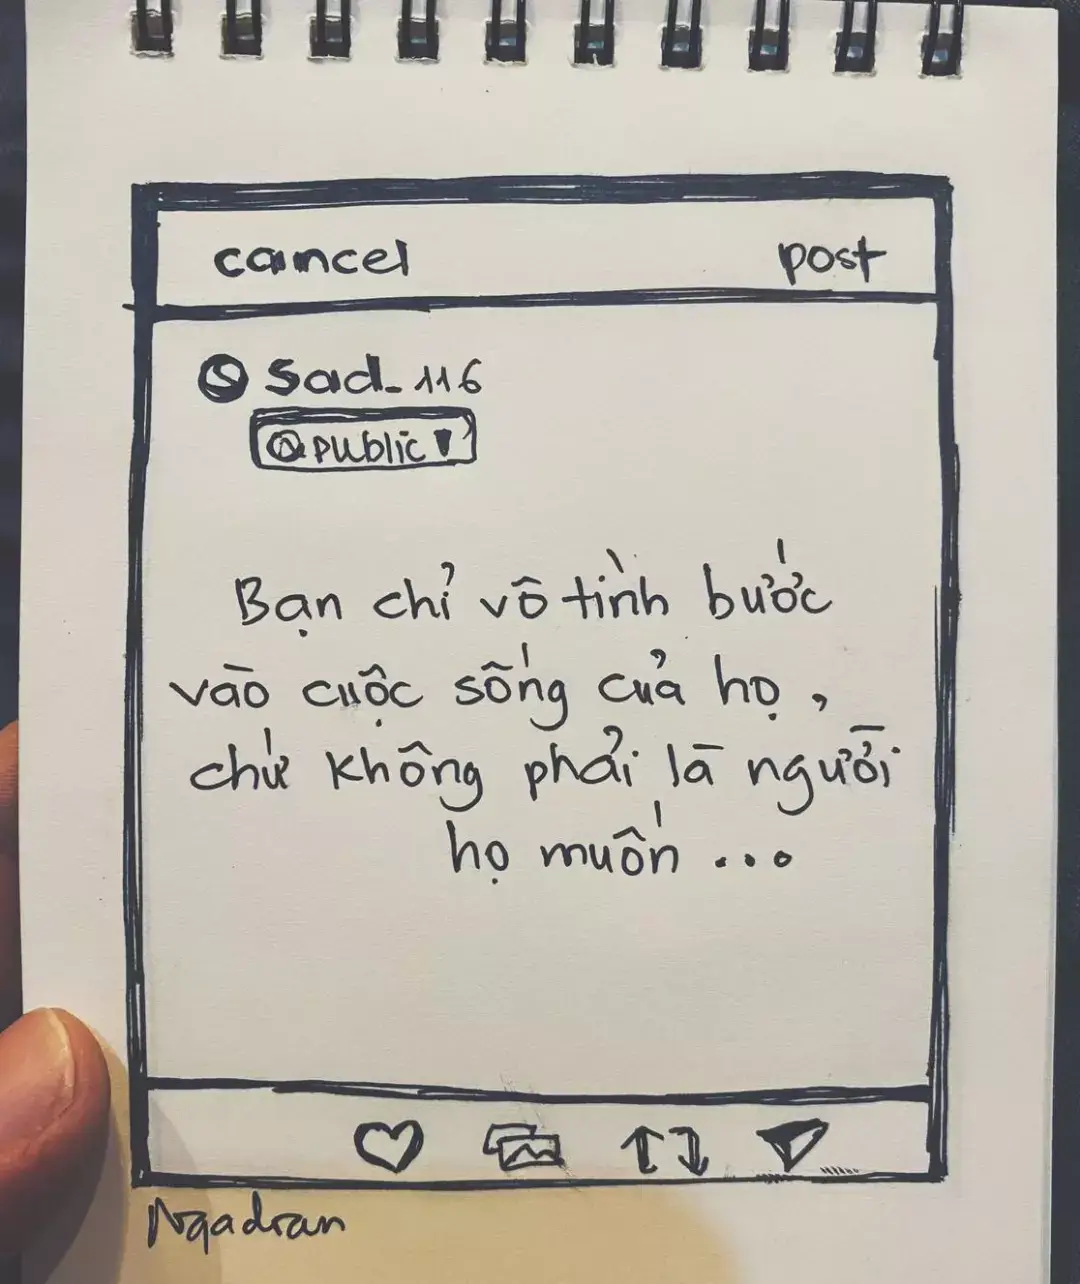 cancel post
sad_116
@public
Bạn chỉ vô tình bước
vào cuộc sống của họ,
chứ không phải là người
họ muốn...
Ngadran